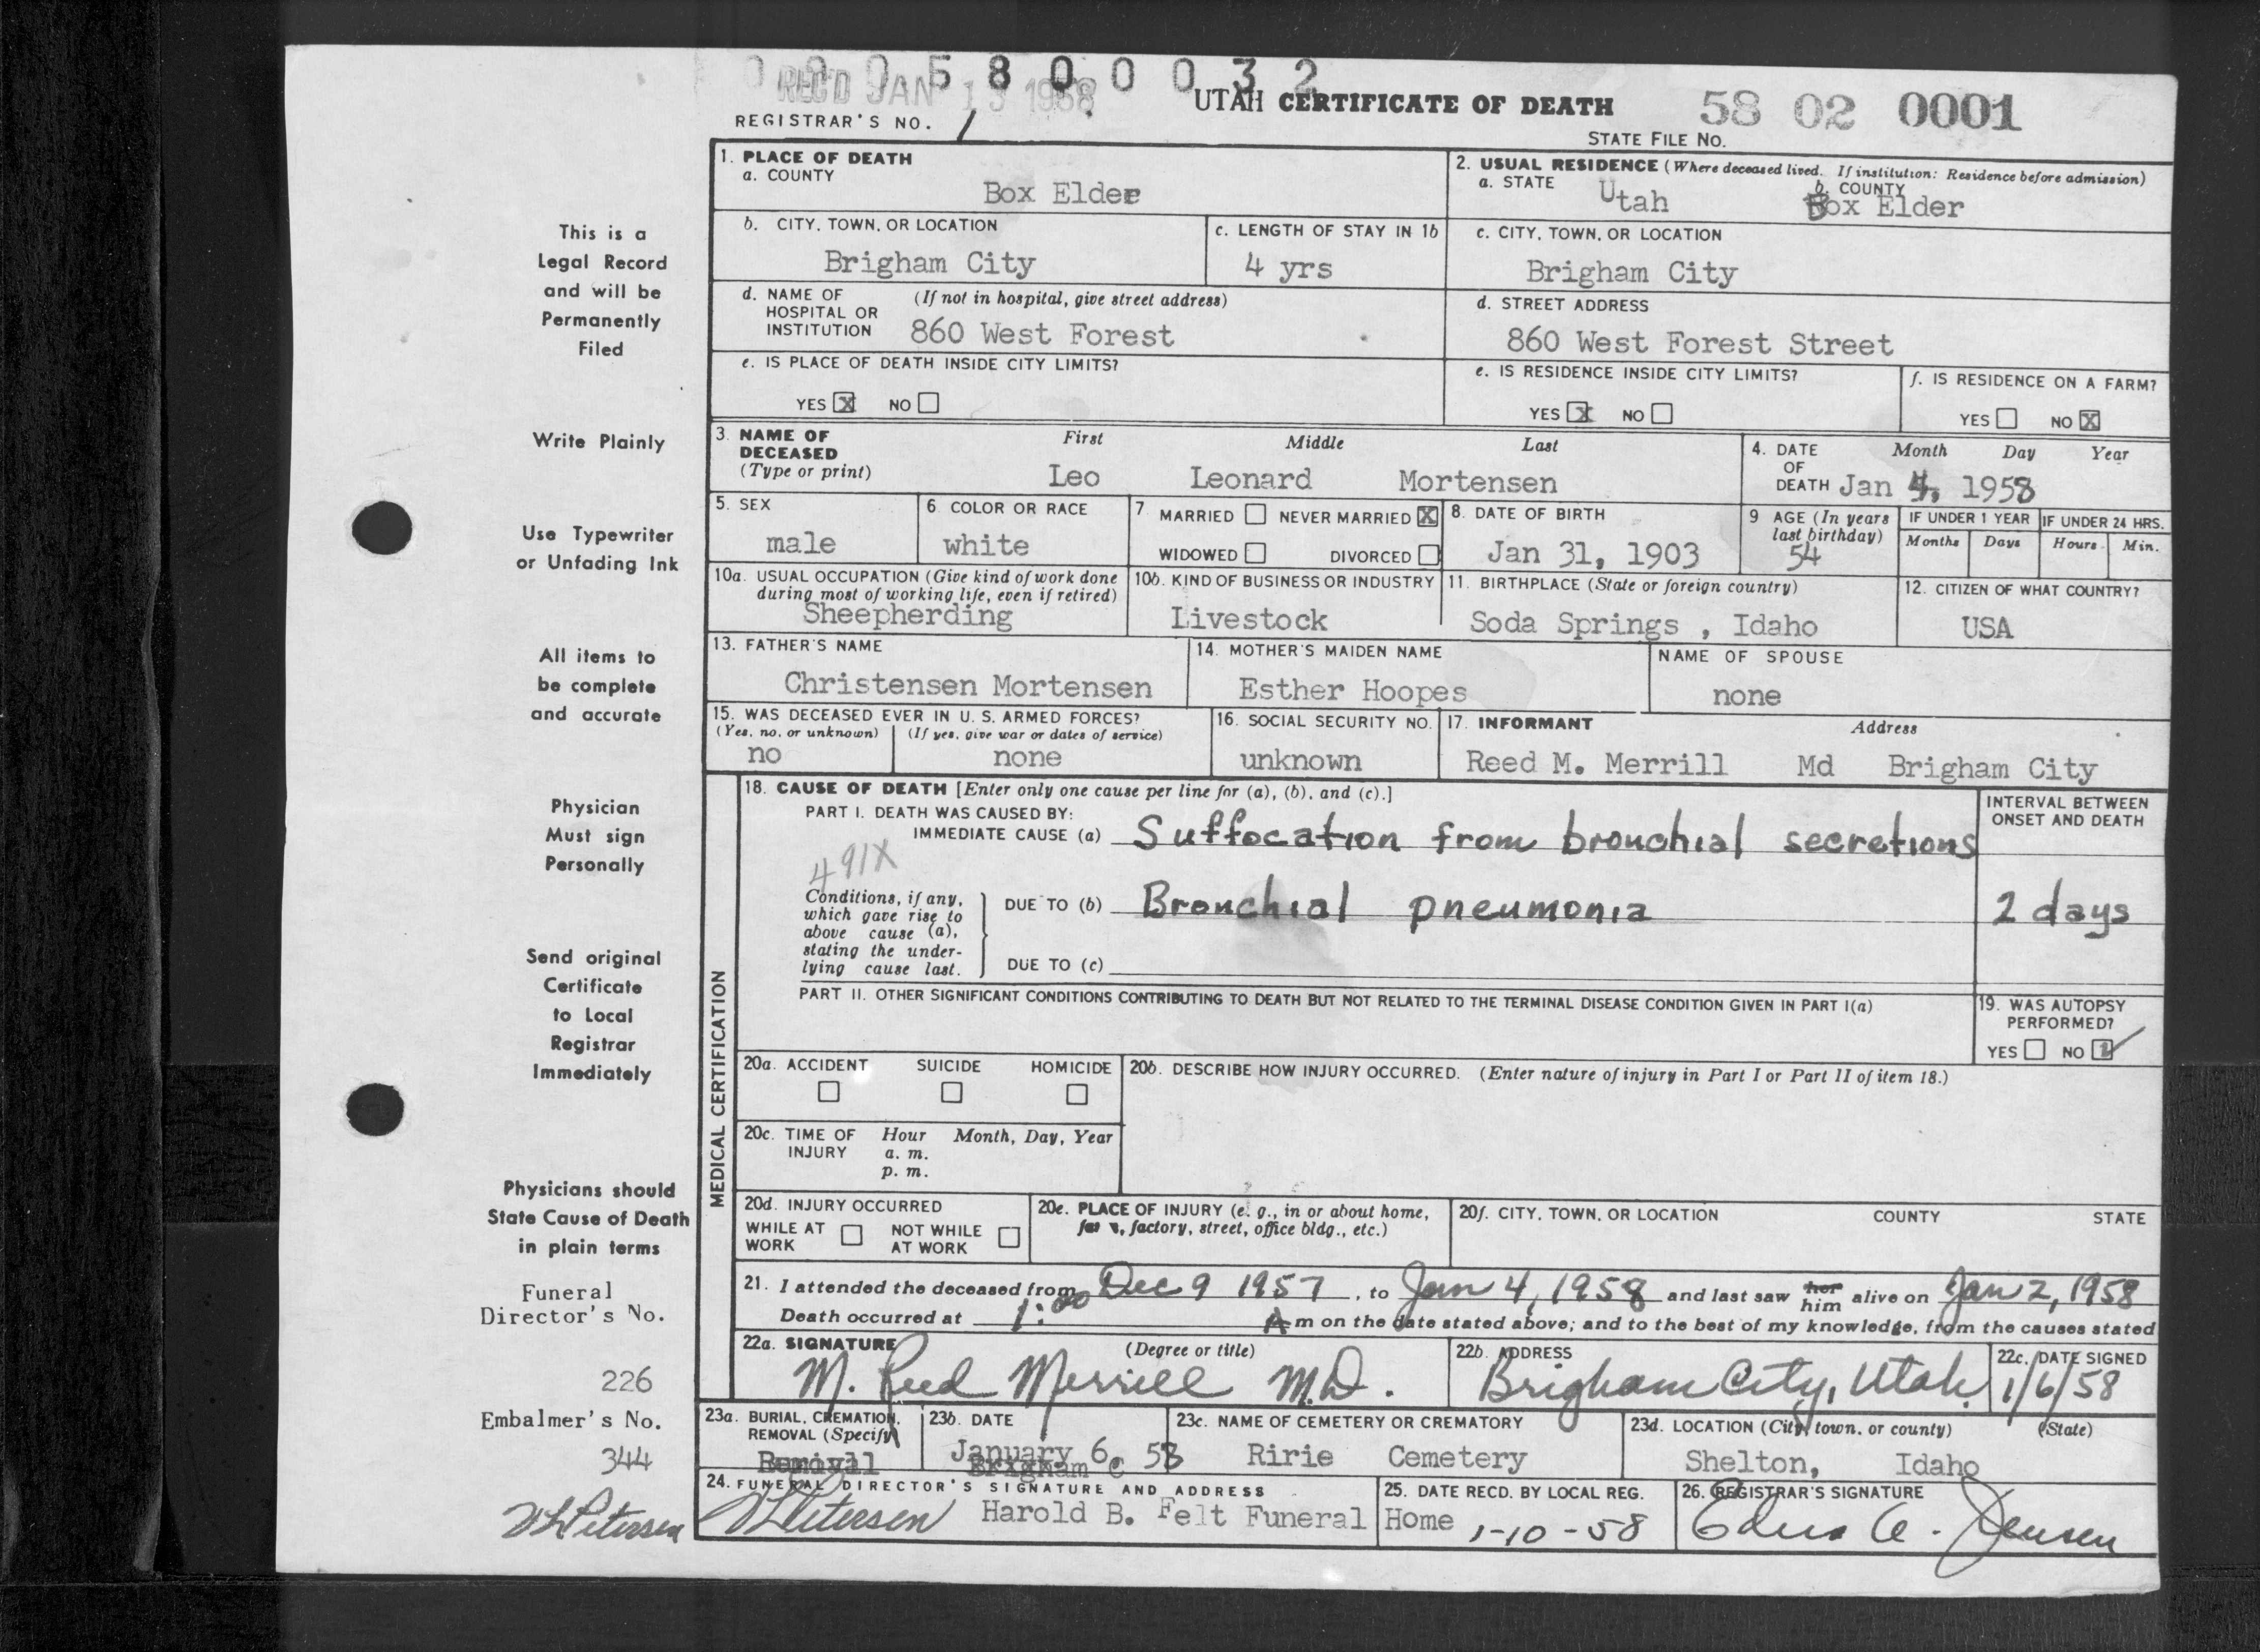 0 0 0 5 8 0 0 0 3 2
REC'D JAN 13 1958
UTAH CERTIFICATE OF DEATH
58 02 0001
REGISTRAR'S NO. 1
STATE FILE No.
1. PLACE OF DEATH
a. COUNTY
Box Elder
2. USUAL RESIDENCE (Where deceased lived. If institution: Residence before admission)
a. STATE
Utah
b. COUNTY
Box Elder
b. CITY, TOWN, OR LOCATION
Brigham City
c. LENGTH OF STAY IN 1b
4 yrs
c. CITY, TOWN, OR LOCATION
Brigham City
d. NAME OF HOSPITAL OR INSTITUTION
(If not in hospital, give street address)
860 West Forest
d. STREET ADDRESS
860 West Forest Street
e. IS PLACE OF DEATH INSIDE CITY LIMITS?
YES X NO
e. IS RESIDENCE INSIDE CITY LIMITS?
YES X NO
f. IS RESIDENCE ON A FARM?
YES NO X
3. NAME OF DECEASED
(Type or print)
First Middle Last
Leo Leonard Mortensen
4. DATE OF DEATH
Month Day Year
Jan 4, 1958
5. SEX
male
6. COLOR OR RACE
white
7. MARRIED NEVER MARRIED X
WIDOWED DIVORCED
8. DATE OF BIRTH
Jan 31, 1903
9 AGE (In years last birthday)
54
IF UNDER 1 YEAR
Months Days
IF UNDER 24 HRS.
Hours Min.
10a. USUAL OCCUPATION (Give kind of work done
during most of working life, even if retired)
Sheepherding
10b. KIND OF BUSINESS OR INDUSTRY
Livestock
11. BIRTHPLACE (State or foreign country)
Soda Springs , Idaho
12. CITIZEN OF WHAT COUNTRY?
USA
13. FATHER'S NAME
Christensen Mortensen
14. MOTHER'S MAIDEN NAME
Esther Hoopes
NAME OF SPOUSE
none
15. WAS DECEASED EVER IN U. S. ARMED FORCES?
(Yes, no, or unknown) (If yes, give war or dates of service)
no none
16. SOCIAL SECURITY NO.
unknown
17. INFORMANT Address
Reed M. Merrill Md Brigham City
MEDICAL CERTIFICATION
18. CAUSE OF DEATH [Enter only one cause per line for (a), (b), and (c).]
PART I. DEATH WAS CAUSED BY:
IMMEDIATE CAUSE (a) Suffocation from bronchial secretions
INTERVAL BETWEEN
ONSET AND DEATH
491X
Conditions, if any,
which gave rise to
above cause (a),
stating the under-
lying cause last.
DUE TO (b) Bronchial pneumonia
2 days
DUE TO (c)
PART II. OTHER SIGNIFICANT CONDITIONS CONTRIBUTING TO DEATH BUT NOT RELATED TO THE TERMINAL DISEASE CONDITION GIVEN IN PART I(a)
19. WAS AUTOPSY
PERFORMED?
YES NO
20a. ACCIDENT SUICIDE HOMICIDE
20b. DESCRIBE HOW INJURY OCCURRED. (Enter nature of injury in Part I or Part II of item 18.)
20c. TIME OF INJURY
Hour Month, Day, Year
a. m.
p. m.
20d. INJURY OCCURRED
WHILE AT WORK NOT WHILE AT WORK
20e. PLACE OF INJURY (e. g., in or about home,
factory, street, office bldg., etc.)
20f. CITY, TOWN, OR LOCATION COUNTY STATE
21. I attended the deceased from Dec 9 1957, to Jan 4, 1958 and last saw her him alive on Jan 2, 1958
Death occurred at 1:00 A m on the date stated above; and to the best of my knowledge, from the causes stated
22a. SIGNATURE (Degree or title)
M. Reed Merrill M.D.
22b. ADDRESS
Brigham City, Utah.
22c. DATE SIGNED
1/6/58
23a. BURIAL, CREMATION,
REMOVAL (Specify)
23b. DATE
January 6, 58
23c. NAME OF CEMETERY OR CREMATORY
Ririe Cemetery
23d. LOCATION (City, town, or county) (State)
Shelton, Idaho
24. FUNERAL DIRECTOR'S SIGNATURE AND ADDRESS
Petersen Harold B. Felt Funeral Home
25. DATE RECD. BY LOCAL REG.
1-10-58
26. REGISTRAR'S SIGNATURE
Jensen
This is a
Legal Record
and will be
Permanently
Filed
Write Plainly
Use Typewriter
or Unfading Ink
All items to
be complete
and accurate
Physician
Must sign
Personally
Send original
Certificate
to Local
Registrar
Immediately
Physicians should
State Cause of Death
in plain terms
Funeral
Director's No.
226
Embalmer's No.
344
Petersen